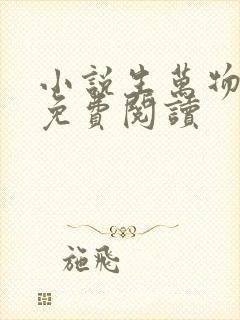 小說生萬物
免費閱讀
施飛